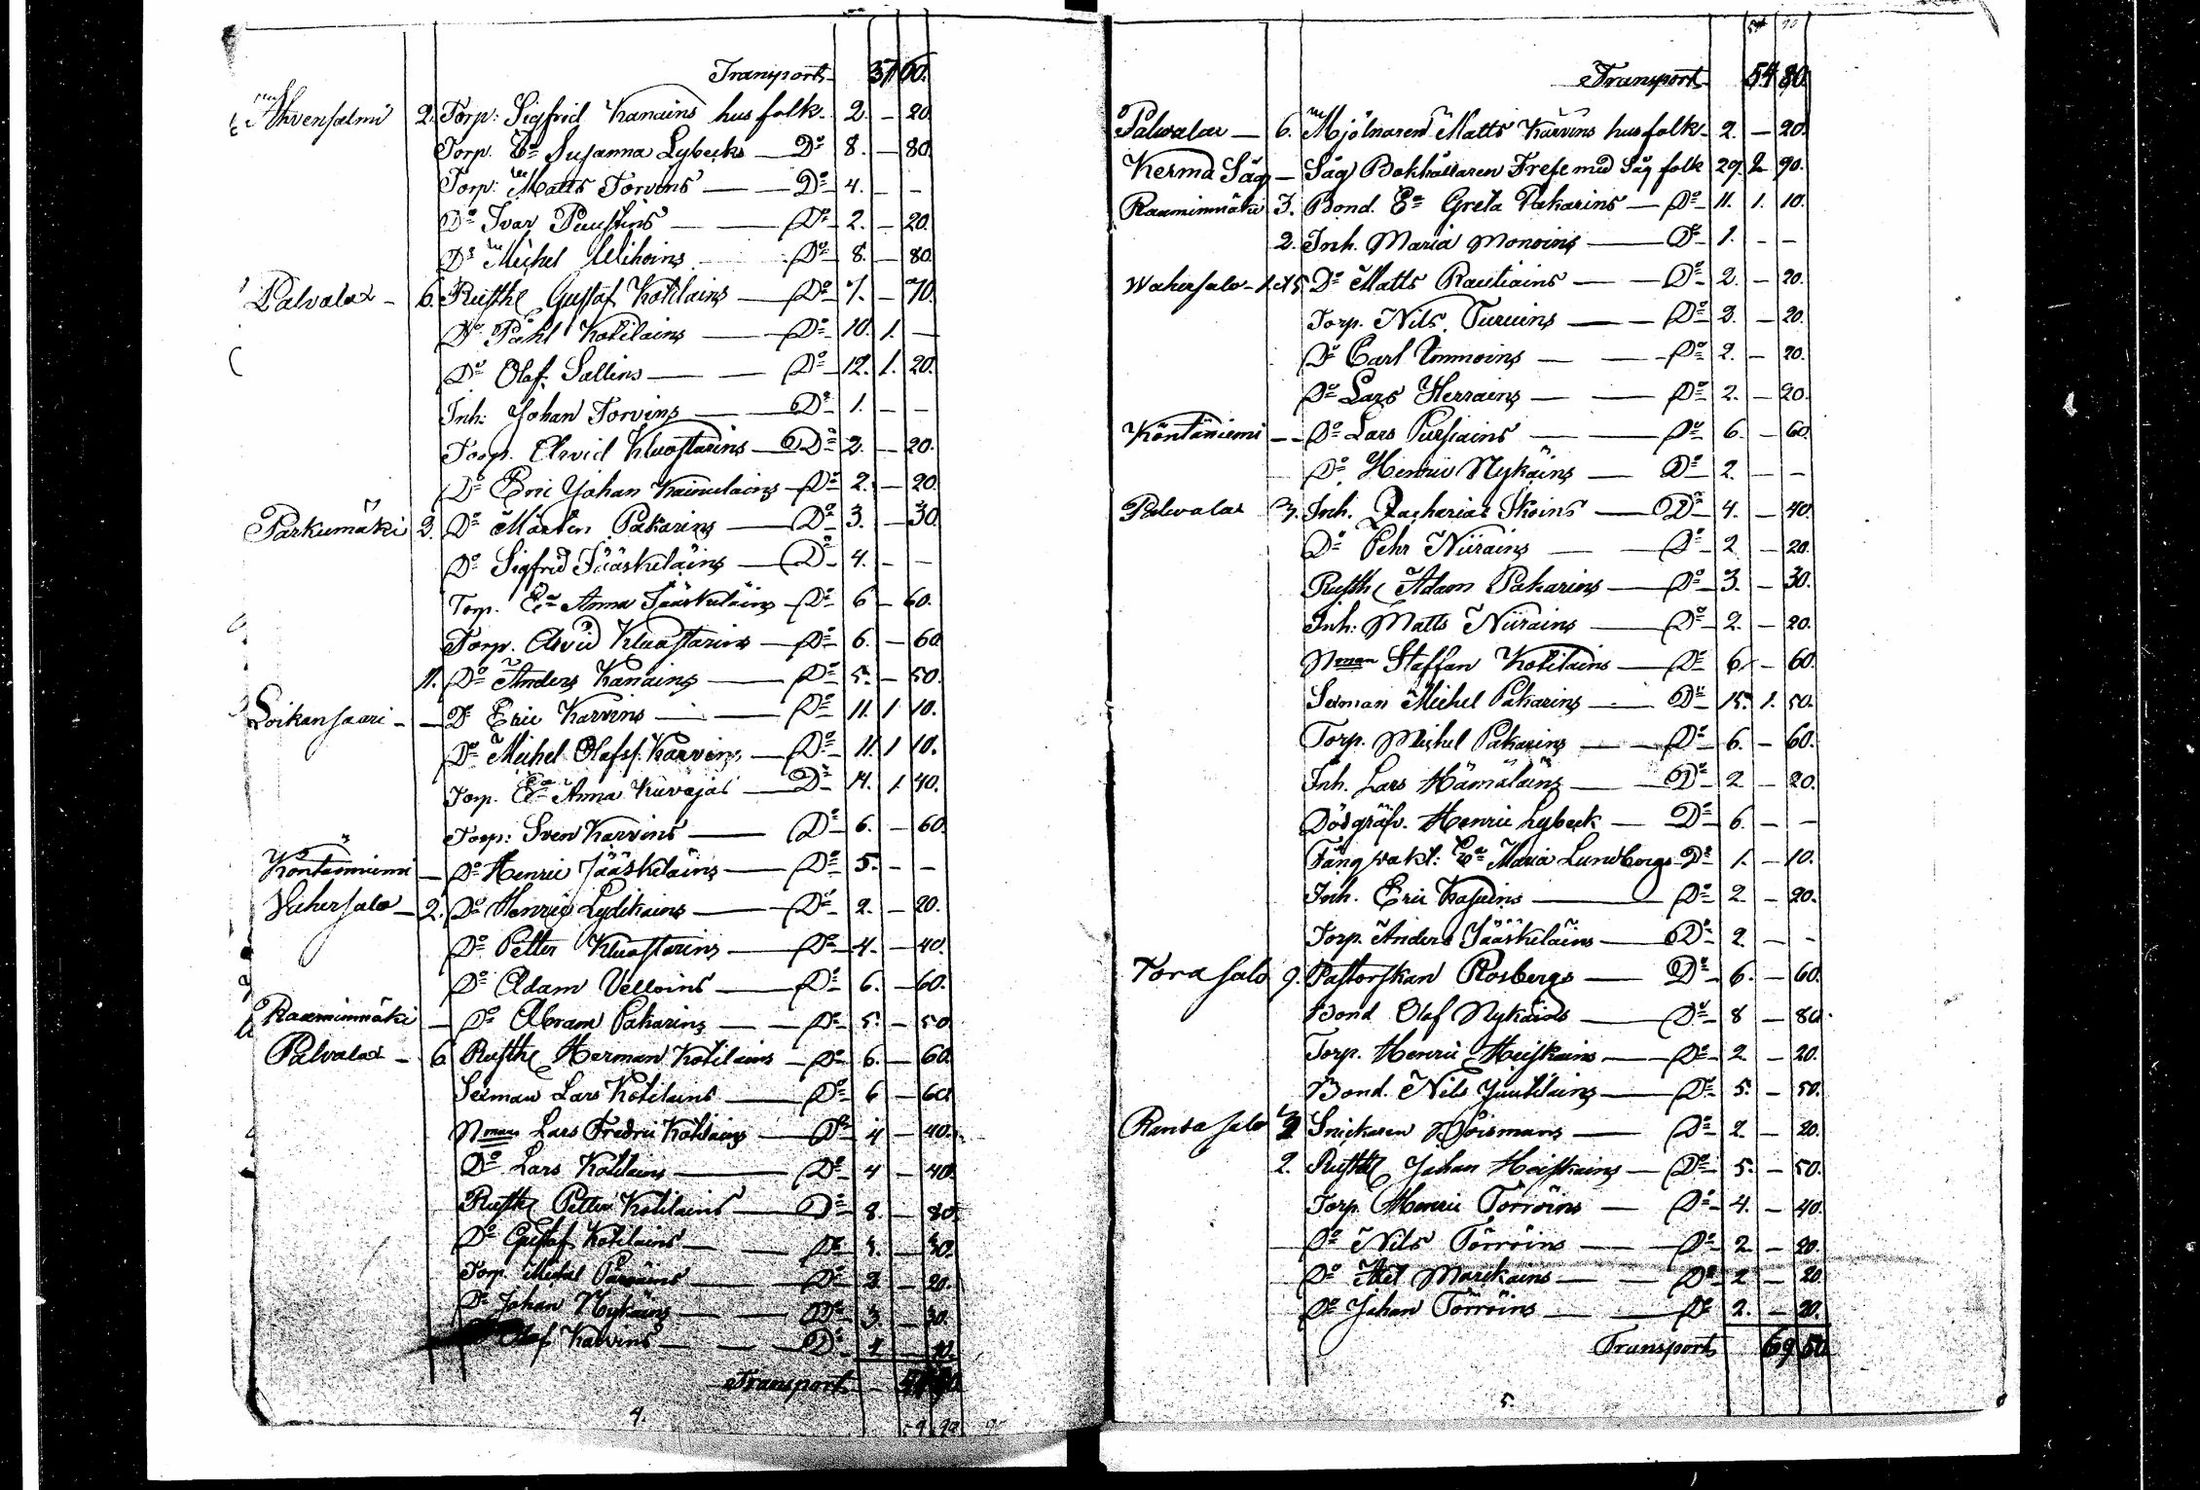 Transport 37 60.
Ahvensalmi 2. Torp. Sigfrid Kanains husfolk 2. — 20.
Torp. Ea Susanna Lybecks — Do 8. — 80.
Torp. Matts Torvins — Do 4. — —
Do Ivar Paustins — Do 2. — 20.
Do Michel — Do 8. — 80.
Palvalax — 6. Rusth Gustaf Kotilains — Do 7. — 70.
Do Påhl Kotilains — Do 10. 1. —
Do Olof Sallins — Do 12. 1. 20.
Inh: Johan Torvins — Do 1. — —
Torp. Arvid Kluastarins — Do 2. — 20.
Do Eric Johan Kainulains — Do 2. — 20.
Parkumäki 3. Do Mårten Pakarins — Do 3. — 30.
Do Sigfrid Jääskeläins — Do 4. — —
Torp. Ea Anna Jääskeläins — Do 6 — 60.
Torp. Arvid Kluastarins — Do 6. — 60
11. Do Anders Kanains — Do 5. — 50.
Loikansaari — — Do Eric Karvins — Do 11. 1 10.
Do Michel Olofs. Karvins — Do 11. 1 10.
Torp. Ea Anna Kuvajas — Do 14. 1. 40.
Torp: Sven Karvins — Do 6. — 60.
Kontiöniemi — Do Henric Jääskeläins — Do 5. — —
Vahersalo — 2. Do Henric Lydikains — Do 2. — 20.
Do Petter Kluastarins — Do 4. — 40.
Do Adam Velloins — Do 6. — 60.
Raaminmäki — Do Abram Pakarins — Do 5. — 50
Palvalax — 6 Rusth Herman Kotilains — Do 6. — 60.
Sexman Lars Kotilains — Do 6 — 60.
Nman Lars Fredric Kotilains — Do 4 — 40.
Do Lars Kotilains — Do 4 — 40.
Rusth Petter Kotilains — Do 8. — 80.
Do Gustaf Kotilains — Do 3. — 30.
Torp. Michel — Do 2 — 20.
Do Johan Nykäins — Do 3. — 30.
Olof Karvins — Do 1 — 10.
Transport
4.
Transport 54 80.
Palvalax — 6. Mjölnaren Matts Karvins husfolk 2. — 20.
Kerma Såg — Såg Bokhållaren Frese med Såg folk 29. 2 90.
Raaminmäki 3. Bond. Ea Greta Pakarins — Do 11. 1. 10.
2. Inh. Maria Monoins — Do 1. — —
Wahersalo — 1. Do Matts Rautiains — Do 2. — 20.
Torp. Nils Turuins — Do 2. — 20.
Do Carl Immoins — Do 2. — 20.
Do Lars Herrains — Do 2. — 20.
Köntäniemi — Do Lars Pursiains — Do 6. — 60
Do Henric Nykäins — Do 2. — —
Palvalax 3. Inh. Zacharias Ikoins — Do 4. — 40.
Do Pehr Niirains — Do 2 — 20.
Rusth Adam Pakarins — Do 3. — 30.
Inh: Matts Niirains — Do 2. — 20.
Nman Staffan Kotilains — Do 6 — 60.
Sexman Michel Pakarins — Do 15. 1. 50.
Torp. Michel Pakarins — Do 6. — 60.
Inh. Lars Hämäläins — Do 2 — 20.
Dödgräfv. Henric Lybeck — Do 6. — —
Fångvakt: Ea Maria Lundbergs Do 1. — 10.
Inh. Eric Kasuins — Do 2 — 20.
Torp. Anders Jääskeläins — Do 2 — —
Torasalo 9. Pastorskan Rosbergs — Do 6. — 60.
Bond Olof Nykäins — Do 8 — 80.
Torp. Henric Heiskains — Do 2. — 20.
Bond. Nils Juutilains — Do 5. — 50.
Rantasalo Snickaren — Do 2. — 20.
2. Rusth Johan Heiskains — Do 5. — 50.
Torp. Henric Törröins — Do 4. — 40.
Do Nils Törröins — Do 2 — 20.
Do Marikains — Do 2 — 20.
Do Johan Törröins — Do 2. — 20.
Transport 69 50
5.